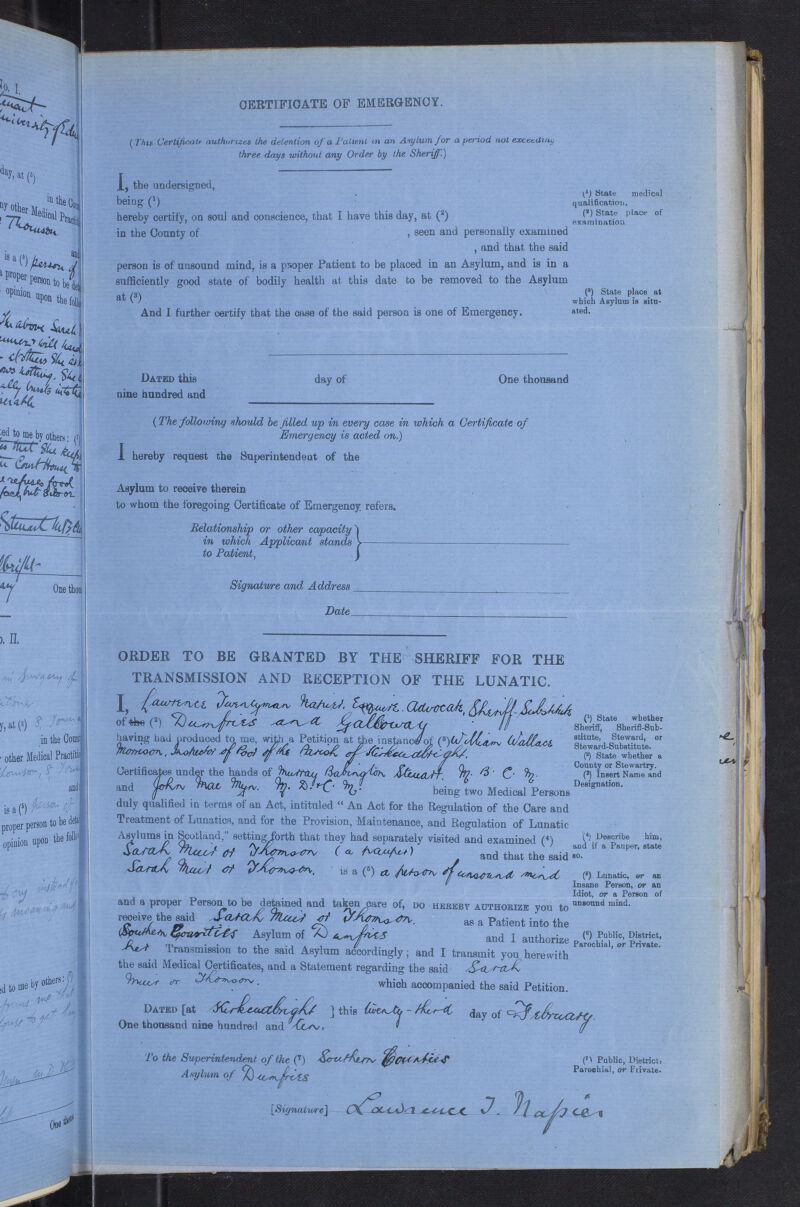 No. I.
in the Coun
ny other Medical Practiti
Thomson
is a (⁵) person of
a proper person to be deta
opinion upon the follo
The above Sarah
ed to me by others: (⁷)
One thou
in the Coun
other Medical Practitio
proper person to be deta
opinion upon the follo
ed to me by others: (⁷)
One thou
CERTIFICATE OF EMERGENCY.
(This Certificate authorizes the detention of a Patient in an Asylum for a period not exceeding
three days without any Order by the Sheriff.)
I, the undersigned,
being (¹)
hereby certify, on soul and conscience, that I have this day, at (²)
in the County of , seen and personally examined
, and that the said
person is of unsound mind, is a proper Patient to be placed in an Asylum, and is in a
sufficiently good state of bodily health at this date to be removed to the Asylum
at (³)
And I further certify that the case of the said person is one of Emergency.
(¹) State medical
qualification.
(²) State place of
examination
(³) State place at
which Asylum is situ-
ated.
DATED this day of One thousand
nine hundred and
(The following should be filled up in every case in which a Certificate of
Emergency is acted on.)
I hereby request the Superintendent of the
Asylum to receive therein
to whom the foregoing Certificate of Emergency refers.
Relationship or other capacity
in which Applicant stands
to Patient,
Signature and Address
Date
ORDER TO BE GRANTED BY THE SHERIFF FOR THE
TRANSMISSION AND RECEPTION OF THE LUNATIC.
I, Lawrence Twentyman Napier, Esquire. Advocate, Sheriff-Substitute
of the (²) Dumfries and Galloway
having had produced to me, with a Petition at the instance of (³) William Wallace
Morrison, Inspector of Poor of the Parish of Kirkcudbright.
Certificates under the hands of Murray Babington Steuart. M. B. C. M.
and John Mac Myn. M. D. & C. M. being two Medical Persons
duly qualified in terms of an Act, intituled “ An Act for the Regulation of the Care and
Treatment of Lunatics, and for the Provision, Maintenance, and Regulation of Lunatic
Asylums in Scotland,” setting forth that they had separately visited and examined (⁴)
Sarah Muir or Thomson (a pauper) and that the said
Sarah Muir or Thomson, is a (⁵) a person of unsound mind
and a proper Person to be detained and taken care of, DO HEREBY AUTHORIZE you to
receive the said Sarah Muir or Thomson. as a Patient into the
(⁶) Southern Counties Asylum of Dumfries and I authorize
her Transmission to the said Asylum accordingly; and I transmit you herewith
the said Medical Certificates, and a Statement regarding the said Sarah
Muir or Thomson. which accompanied the said Petition.
DATED [at Kirkcudbright ] this twenty-third day of February.
One thousand nine hundred and ten.
To the Superintendent of the (⁷) Southern Counties
Asylum of Dumfries
[Signature] Lawrence T. Napier
(¹) State whether
Sheriff, Sheriff-Sub-
stitute, Steward, or
Steward-Substitute.
(²) State whether a
County or Stewartry.
(³) Insert Name and
Designation.
(⁴) Describe him,
and if a Pauper, state
so.
(⁵) Lunatic, or an
Insane Person, or an
Idiot, or a Person of
unsound mind.
(⁶) Public, District,
Parochial, or Private.
(⁷) Public, District,
Parochial, or Private.